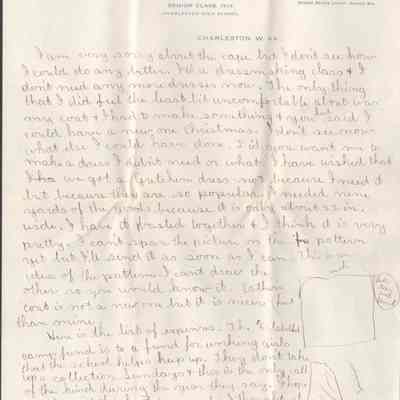 SENIOR CLASS, 1914
CHARLESTON HIGH SCHOOL
CHARLESTON W. VA.
I am very sorry about the cape but I don't see how
I could do any better. It's a dressmaking class & I
don't need any more dresses now. The only thing
that I did feel the least bit uncomfortable about was
my coat & I had to make something & you said I
could have a new one Christmas. I don't see now
what else I could have done. I'd you want me to
make a dress I didn't need or what. I have wished that
we got a Gretchen dress not because I need it
but because they are so popular. I needed nine
yards of the goods because it is only about 22 in.
wide. I have it basted together & I think it is very
pretty. I can't spare the picture on the pattern
yet but I'll send it as soon as I can. This is an
idea of the pattern I can't draw the
other so you would know it.
coat is not a new one but it is nicer
than mine.
Here is the list of expenses. The
camp fund is to a fund for working girls
that the school helps keep up. They don't take
up a collection Sundays & this is the only call
of the kind during the year they say.